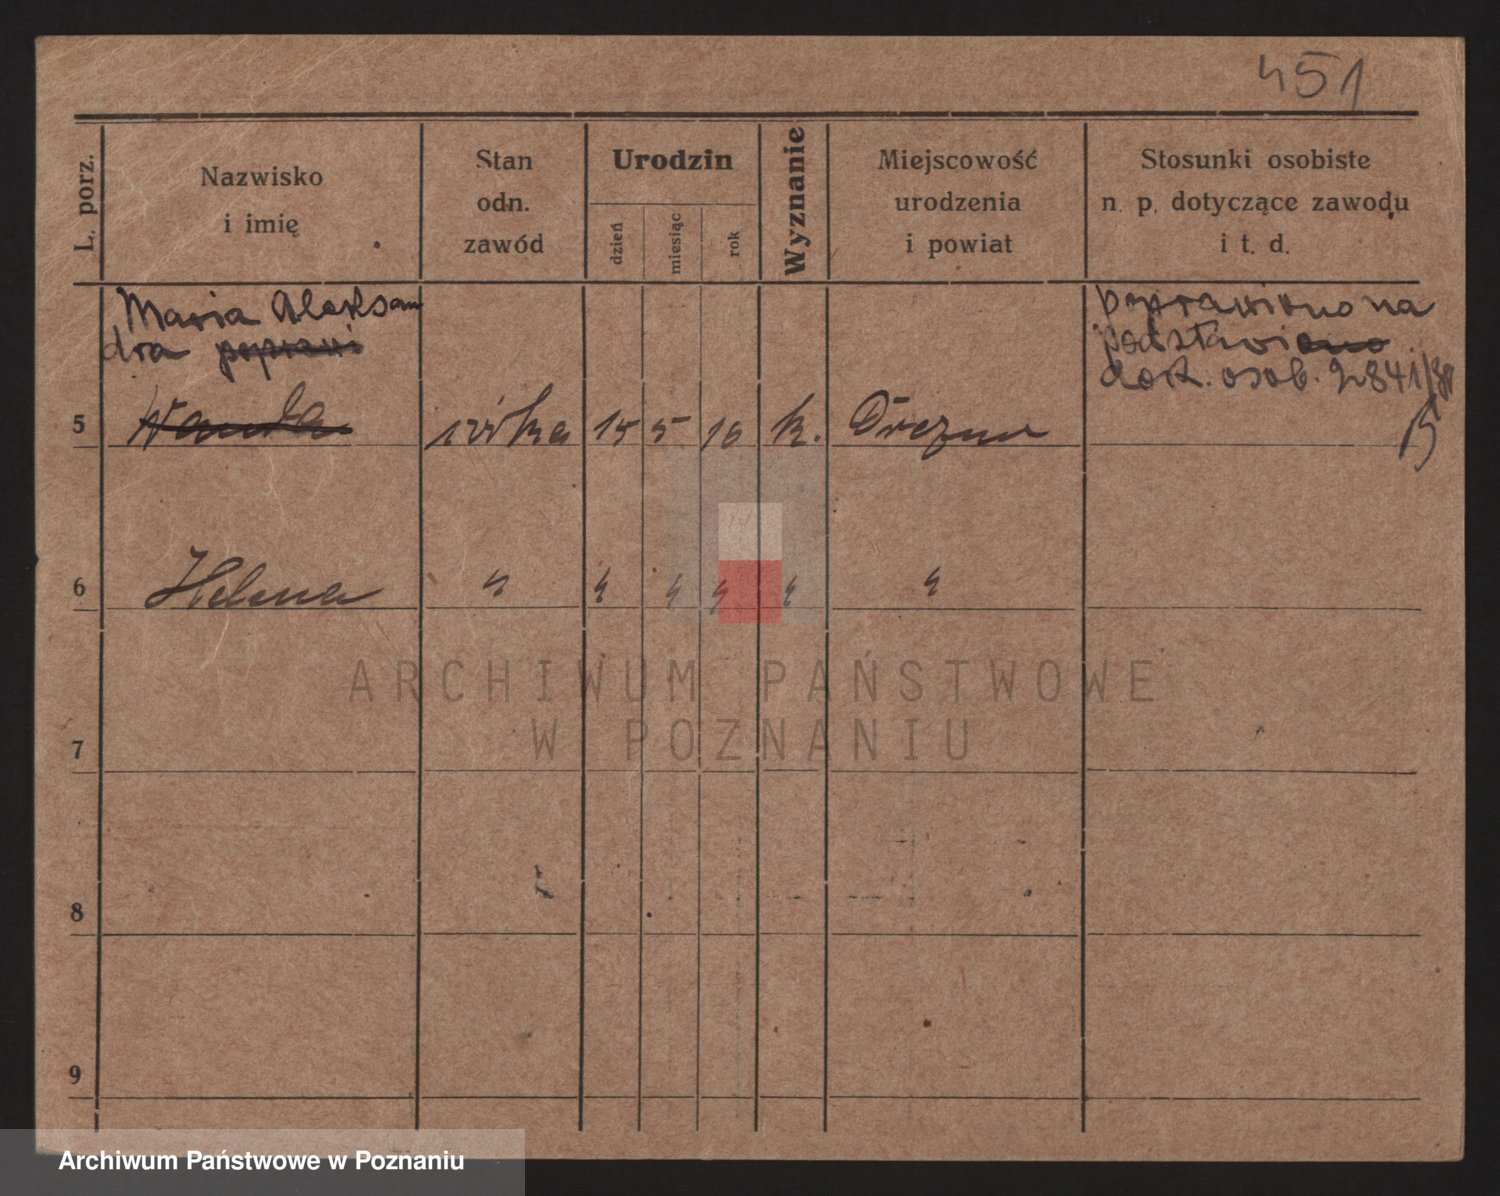 451
L. porz.
Nazwisko
i imię
Stan
odn.
zawód
Urodzin
dzień
miesiąc
rok
Wyznanie
Miejscowość
urodzenia
i powiat
Stosunki osobiste
n. p. dotyczące zawodu
i t. d.
Maria Aleksan
dra poprawi
poprawiono na
podstawiono
dok. osob. 2841/
5 Wanda córka 15 5 16 k.
6 Helena " " " " " "
7
8
9
ARCHIWUM PAŃSTWOWE
W POZNANIU
Archiwum Państwowe w Poznaniu